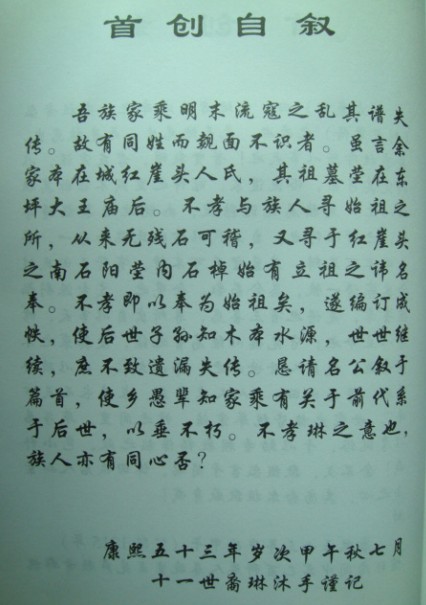 首创自叙
吾族家乘明末流寇之乱其谱失
传。故有同姓而觌面不识者。虽言余
家本在城红崖头人氏，其祖墓茔在东
坪大王庙后。不孝与族人寻始祖之
所，从来无残石可稽，又寻于红崖头
之南石阳茔内石棹始有立祖之讳名
奉。不孝即以奉为始祖矣，遂编订成
帙，使后世子孙知木本水源，世世继
续，庶不致遗漏失传。恳请名公叙于
篇首，使乡愚辈知家乘有关于前代系
于后世，以垂不朽。不孝琳之意也，
族人亦有同心否？
康熙五十三年岁次甲午秋七月
十一世裔琳沐手谨记